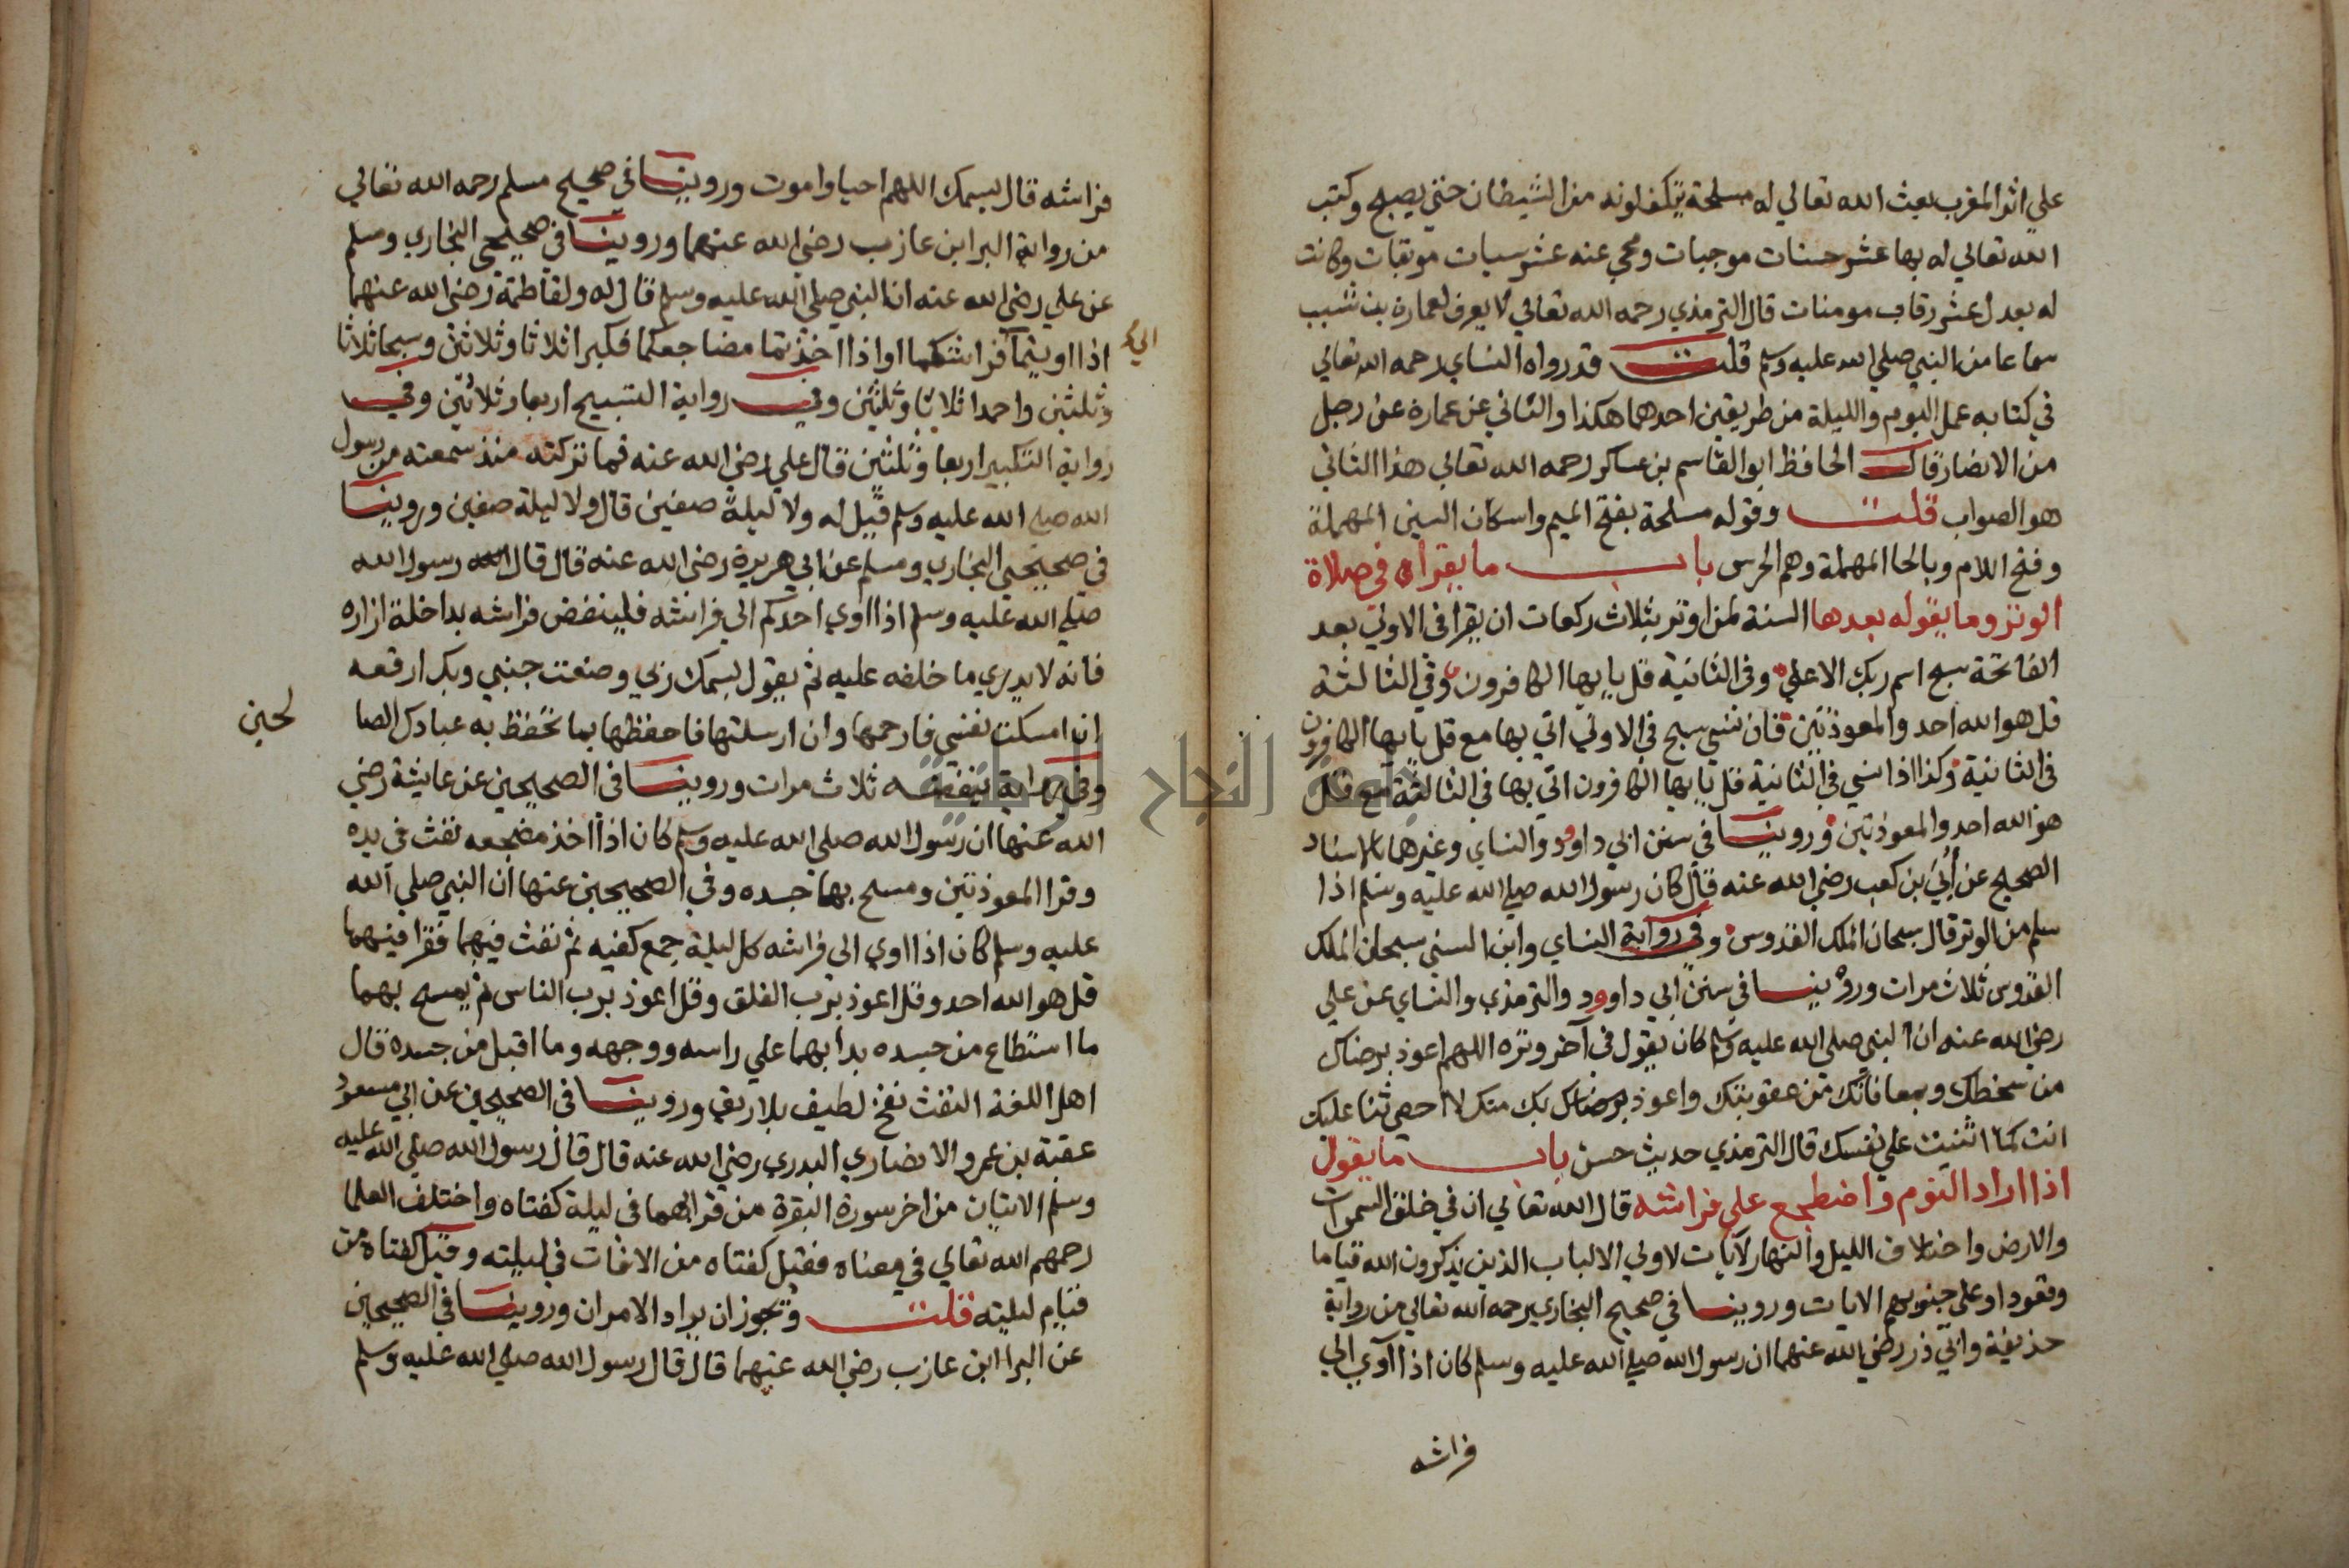 علي اثر المغرب بعث الله تعالي له مسلحة يتكفلونه من الشيطان حتي يصبح وكتب
الله تعالي له بها عشر حسنات موجبات ومحي عنه عشر سيات موبقات وكانت
له بعدل عشر رقاب مومنات قال الترمذي رحمه الله تعالي لا يعرف لعمارة بن شبيب
سماعا من النبي صلي الله عليه وسلم قلت قد رواه النساي رحمه الله تعالي
في كتابه عمل اليوم والليلة من طريقين احدهما هكذا والثاني عن عمارة عن رجل
من الانصار قال الحافظ ابو القاسم بن عساكر رحمه الله تعالي هذا الثاني
هو الصواب قلت وقوله مسلحة بفتح الميم واسكان السين المهملة
وفتح اللام وبالحا المهملة وهم الحرس باب ما يقراه في صلاة
الوتر وما يقوله بعدها السنة لمن اوتر بثلاث ركعات ان يقرا في الاولي بعد
الفاتحة سبح اسم ربك الاعلي وفي الثانية قل يا يها الكافرون وفي الثالثة
قل هو الله احد والمعوذتين فان نسي سبح في الاولي اتي بها مع قل يا يها الكافرون
في الثانية وكذا اذا نسي في الثانية قل يا يها الكافرون اتي بها في الثالثة مع قل
هو الله احد والمعوذتين وروينا في سنن ابي داوود والنساي وغيرهما بالاسناد
الصحيح عن أُبَي بن كعب رضي الله عنه قال كان رسول الله صلي الله عليه وسلم اذا
سلم من الوتر قال سبحان الملك القدوس وفي رواية النساي وابن السني سبحان الملك
القدوس ثلاث مرات وروينا في سنن ابي داوود والترمذي والنساي عن علي
رضي الله عنه ان النبي صلي الله عليه وسلم كان يقول في آخر وتره اللهم اعوذ برضاك
من سخطك وبمعافاتك من عقوبتك واعوذ بك منك لا احصي ثنا عليك
انت كما اثنيت علي نفسك قال الترمذي حديث حسن باب ما يقول
اذا اراد النوم واضطجع علي فراشه قال الله تعالي ان في خلق السموات
والارض واختلاف الليل والنهار لآيات لاولي الالباب الذين يذكرون الله قياما
وقعودا وعلي جنوبهم الايات وروينا في صحيح البخاري رحمه الله تعالي من رواية
حذيفة وابي ذر رضي الله عنهما ان رسول الله صلي الله عليه وسلم كان اذا آوي الي
فراشه
فراشه قال بسمك اللهم احيا واموت وروينا في صحيح مسلم رحمه الله تعالي
من رواية البرا ابن عازب رضي الله عنهما وروينا في صحيحي البخاري ومسلم
عن علي رضي الله عنه ان النبي صلي الله عليه وسلم قال له ولفاطمة رضي الله عنهما
اذا اويتما فراشكما او اذا اخذتما مضاجعكما فكبرا ثلاثا وثلاثين وسبحا ثلاثا
الي
وثلثين واحمدا ثلاثا وثلثين وفي رواية التسبيح اربعا وثلاثين وفي
رواية التكبير اربعا وثلثين قال علي رضي الله عنه فما تركته منذ سمعته من رسول
الله صلي الله عليه وسلم قيل له ولا ليلة صفين قال ولا ليلة صفين وروينا
في صحيحي البخاري ومسلم عن ابي هريرة رضي الله عنه قال قال رسول الله
صلي الله عليه وسلم اذا اوي احدكم الي فراشه فلينفض فراشه بداخلة ازاره
فانه لا يدري ما خلفه عليه ثم يقول بسمك ربي وضعت جنبي وبك ارفعه
ان امسكت نفسي فارحمها وان ارسلتها فاحفظها بما تحفظ به عبادك الصا
لحين
وفي رواية ينفضه ثلاث مرات وروينا في الصحيحين عن عايشة رضي
الله عنها ان رسول الله صلي الله عليه وسلم كان اذا اخذ مضجعه نفث في يده
وقرا المعوذتين ومسح بهما جسده وفي الصحيحين عنها ان النبي صلي الله
عليه وسلم كان اذا اوي الي فراشه كل ليلة جمع كفيه ثم نفث فيهما فقرا فيهما
قل هو الله احد وقل اعوذ برب الفلق وقل اعوذ برب الناس ثم يمسح بهما
ما استطاع من جسده بدا بهما علي راسه ووجهه وما اقبل من جسده قال
اهل اللغة النفث نفخ لطيف بلا ريق وروينا في الصحيحين عن ابي مسعود
عقبة بن عمرو الانصاري البدري رضي الله عنه قال قال رسول الله صلي الله عليه
وسلم الايتان من اخر سورة البقرة من قراهما في ليلة كفتاه واختلف العلما
رحمهم الله تعالي في معناه فقيل كفتاه من الافات في ليلته وقيل كفتاه من
قيام ليلته قلت ويجوز ان يراد الامران وروينا في الصحيحين
عن البرا ابن عازب رضي الله عنهما قال قال رسول الله صلي الله عليه وسلم
جامعة النجاح الوطنية